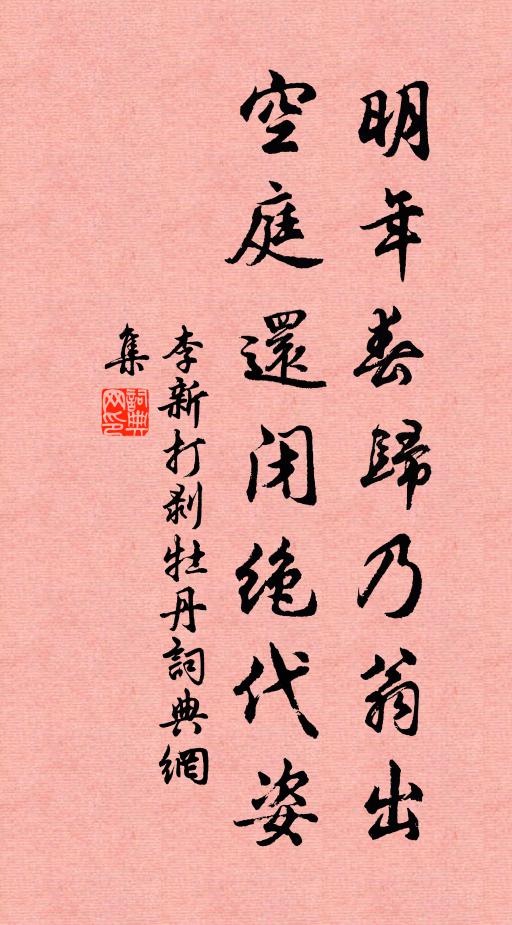 明年春歸乃翁出
空庭還闭絶代姿
李新打剥牡丹詞典網
集
詞典
网印